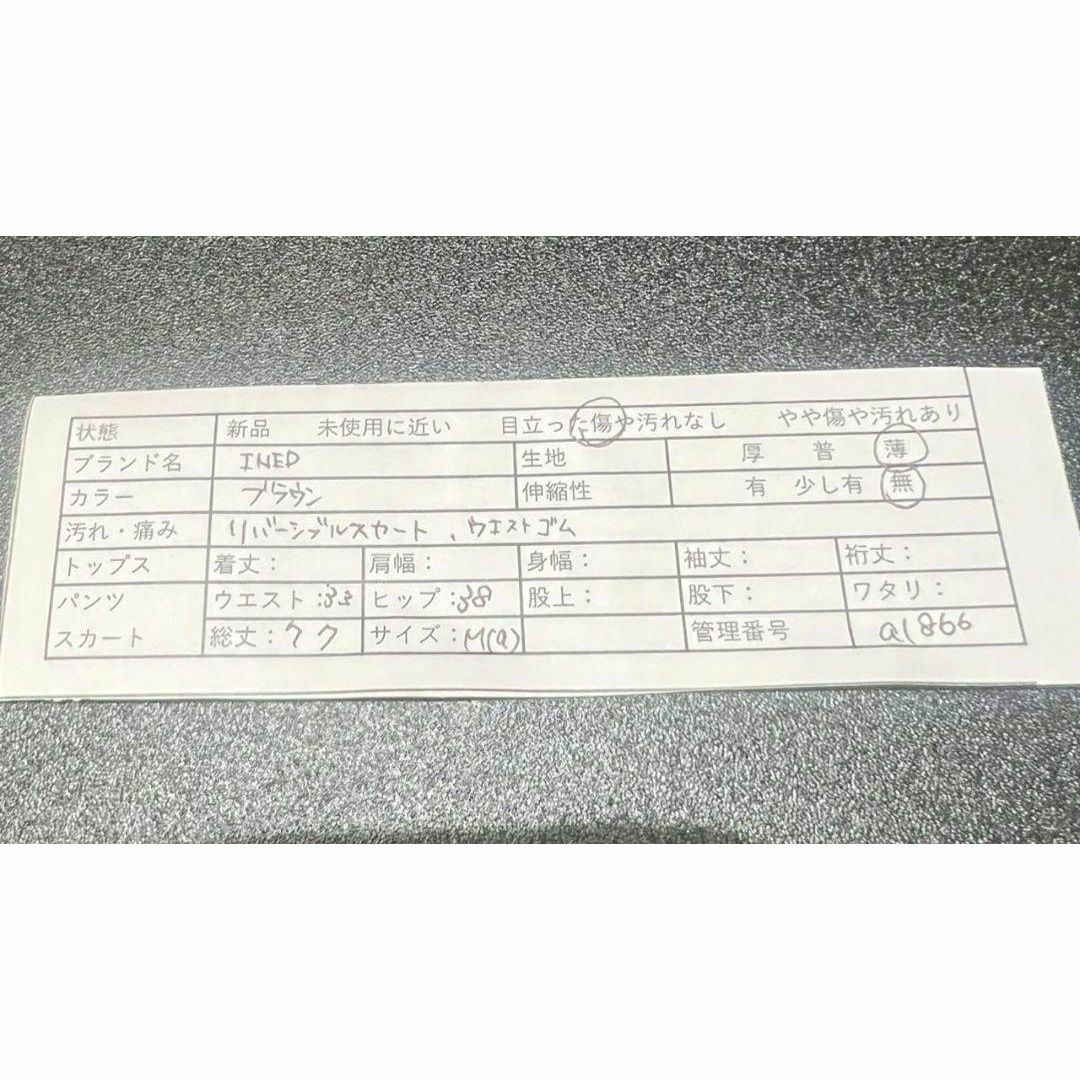 状態 新品 未使用に近い 目立った傷や汚れなし やや傷や汚れあり
ブランド名 INED 生地 厚 普 薄
カラー ブラウン 伸縮性 有 少し有 無
汚れ・痛み リバーシブルスカート、ウエストゴム
トップス 着丈: 肩幅: 身幅: 袖丈: 裄丈:
パンツ ウエスト:33 ヒップ:38 股上: 股下: ワタリ:
スカート 総丈:77 サイズ:M(9) 管理番号 a1866